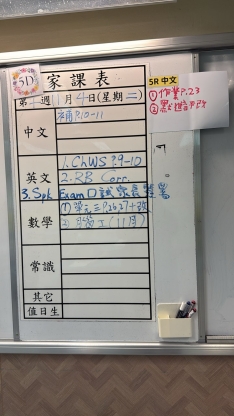 5D
家課表
第 週 11 月 4 日(星期二)
中文
補P.10-11
英文
1. ChWS P.9-10
2. RB Corr.
3. Spk Exam 口試家長簽署
數學
P.26,27+改
(11月)
常識
其它
值日生
5R 中文
① 作業P.23
②